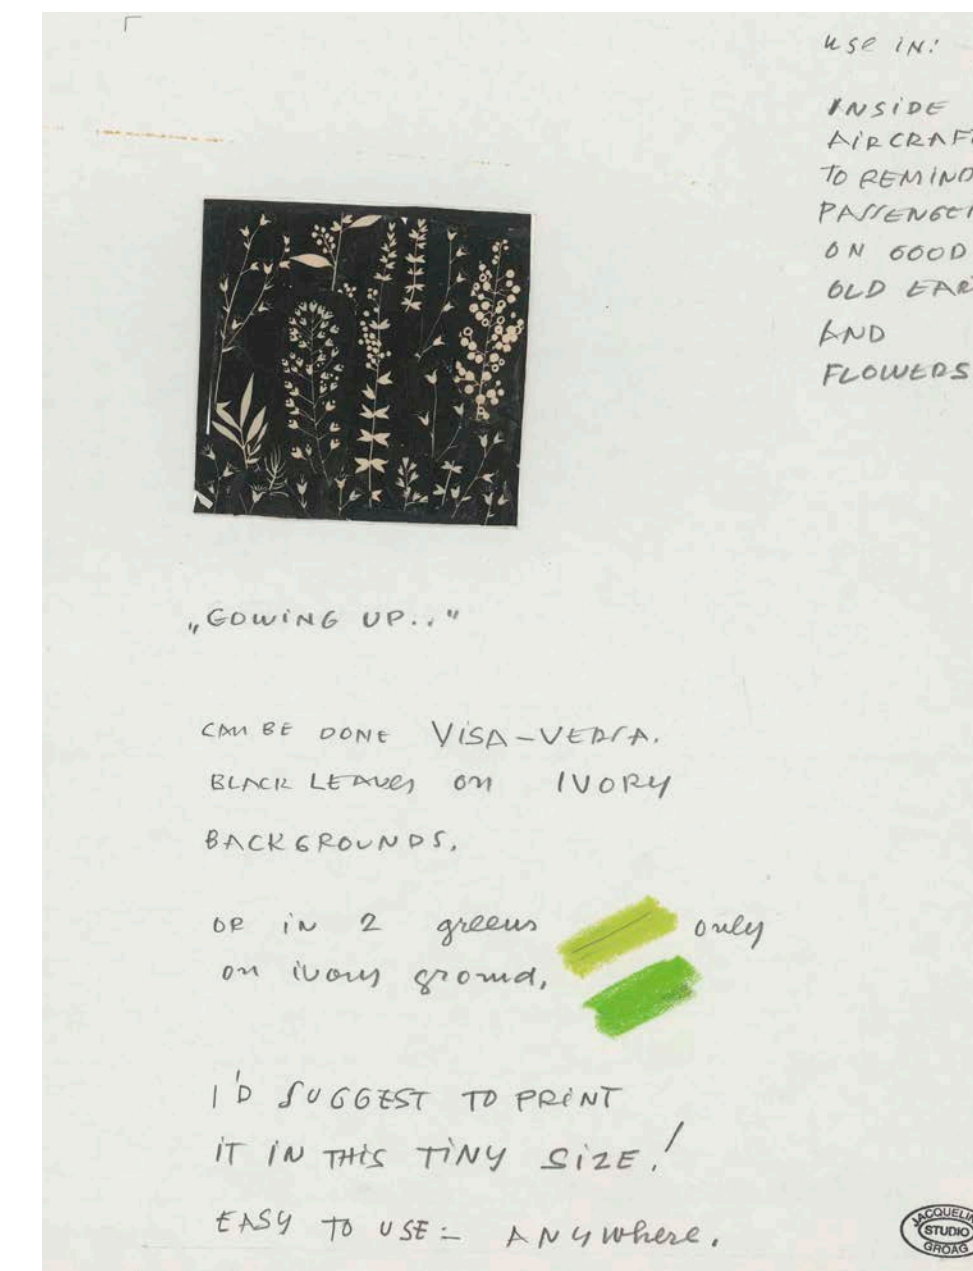 use in:
INSIDE
AIRCRAF
TO REMIND
PASSENGE
ON GOOD
OLD EAR
AND
FLOWERS
„GOWING UP.."
CAN BE DONE VISA-VERSA.
BLACK LEAVES on IVORY
BACKGROUNDS.
OR in 2 greens only
on ivory ground,
I'D SUGGEST TO PRINT
IT IN THIS TINY SIZE!
EASY TO USE: ANYwhere.
JACQUELIN
STUDIO
GROAG